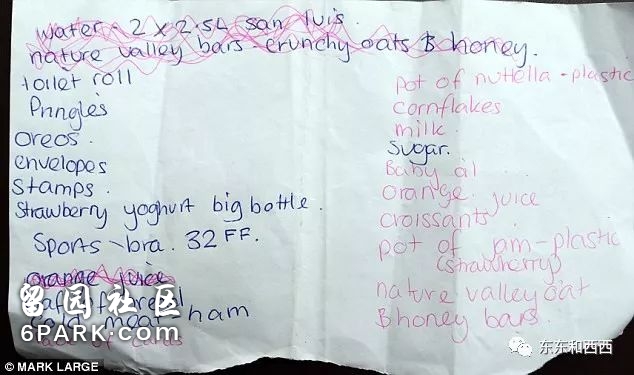 water - 2 x 2.5L san luis.
nature valley bars crunchy oats & honey.
toilet roll
Pringles
oreos.
envelopes
stamps.
strawberry yoghurt big bottle.
sports bra. 32 FF.
orange juice
meat - ham
pot of nutella - plastic
cornflakes
milk.
sugar.
Baby oil
orange juice
croissants
pot of jam - plastic
(strawberry)
nature valley oat
& honey bars.
留园社区
6PARK.COM
© MARK LARGE
东东和西西